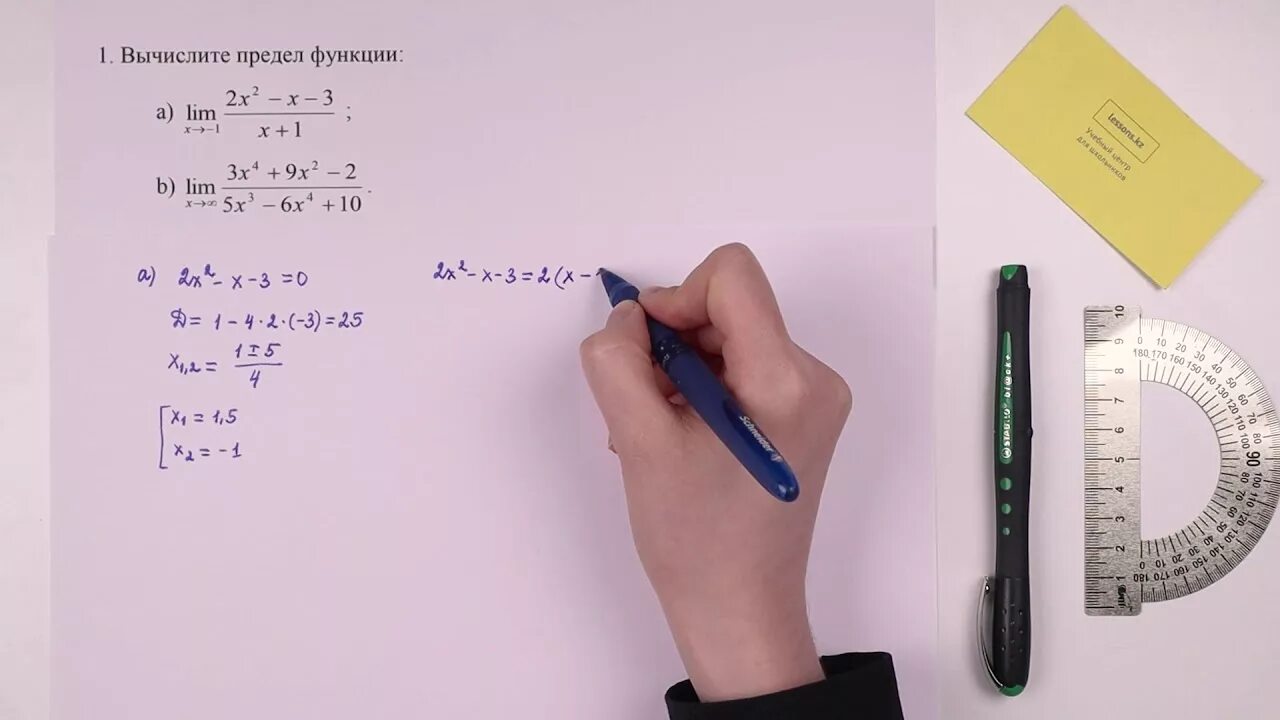 1. Вычислите предел функции:
a) lim x→−1 (2x² − x − 3)/(x + 1) ;
b) lim x→∞ (3x⁴ + 9x² − 2)/(5x³ − 6x⁴ + 10) .
a) 2x² - x - 3 = 0
Д = 1 - 4·2·(-3) = 25
x₁,₂ = (1 ± 5)/4
[x₁ = 1,5
x₂ = -1
2x² - x - 3 = 2(x -
lessons.kz
Учебный центр
для школьников
Schneider
STABILO bl@ck+
10
9
8
7
6
5
4
3
2
1
0 10 20 30 40 50 60 70 80 90
180 170 160 150 140 130 120 110 100